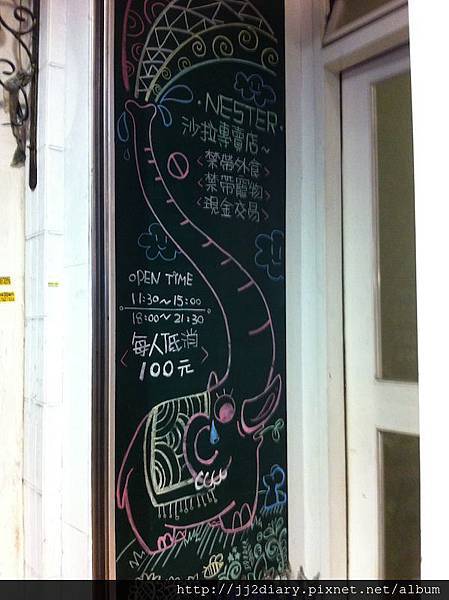 ·NESTER·
沙拉專賣店~
<禁帶外食>
<禁帶寵物>
<現金交易>
OPEN TIME
11:30~15:00
18:00~21:30
<每人低消>
100元
http://jj2diary.pixnet.net/album